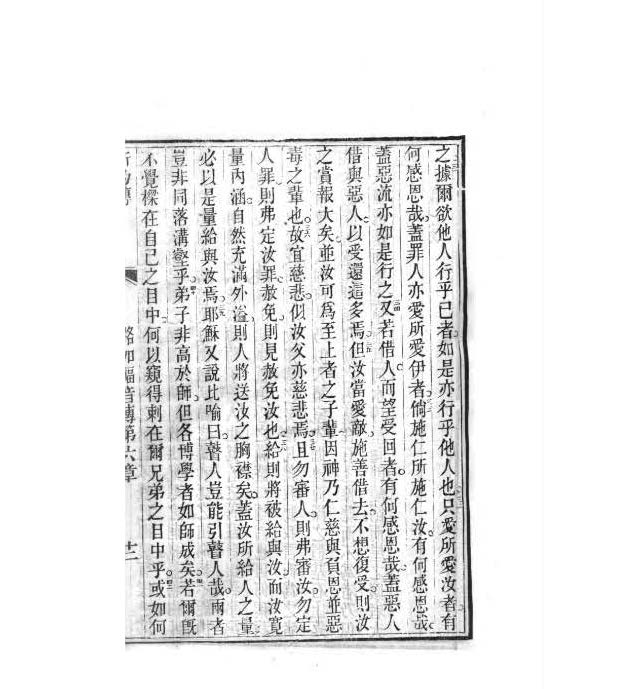 之據爾欲他人行乎己者如是亦行乎他人也只愛所愛汝者有
何感恩哉蓋罪人亦愛所愛伊者倘施仁所施仁汝有何感恩哉
蓋惡流亦如是行之又若借人而望受回者有何感恩哉蓋惡人
借與惡人以受還這多焉但汝當愛敵施善借去不想復受則汝
之賞報大矣並汝可為至上者之子輩因神乃仁慈與負恩並惡
毒之輩也故宜慈悲似汝父亦慈悲焉且勿審人則弗審汝勿定
人罪則弗定汝罪赦免則見赦免汝也給則將被給與汝而汝寬
量內涵自然充滿外溢則人將送汝之胸襟矣蓋汝所給人之量
必以是量給與汝焉耶穌又說此喻曰瞽人豈能引瞽人哉兩者
豈非同落溝壑乎弟子非高於師但各博學者如師成矣若爾既
不覺樑在自己之目中何以窺得刺在爾兄弟之目中乎或如何
路加福音傳第六章 廿二